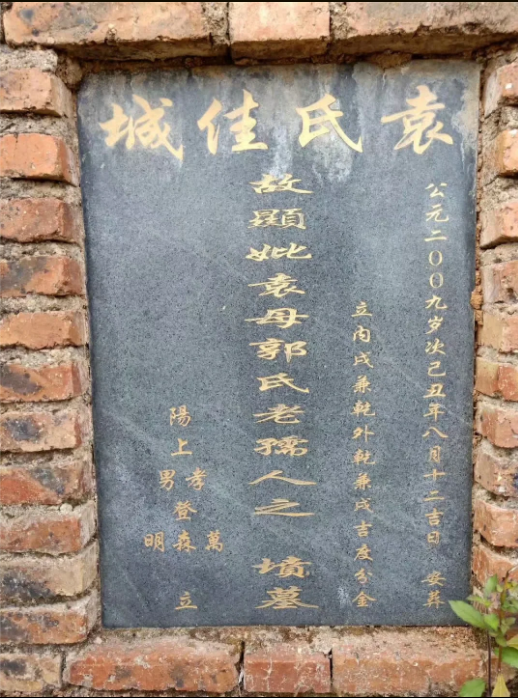 袁氏佳城
公元二〇〇九岁次己丑年八月十二吉日 安葬
立内戌兼乾外乾兼戌吉度分金
故顕妣袁母郭氏老孺人之 墳墓
陽上孝男登萬森明 立